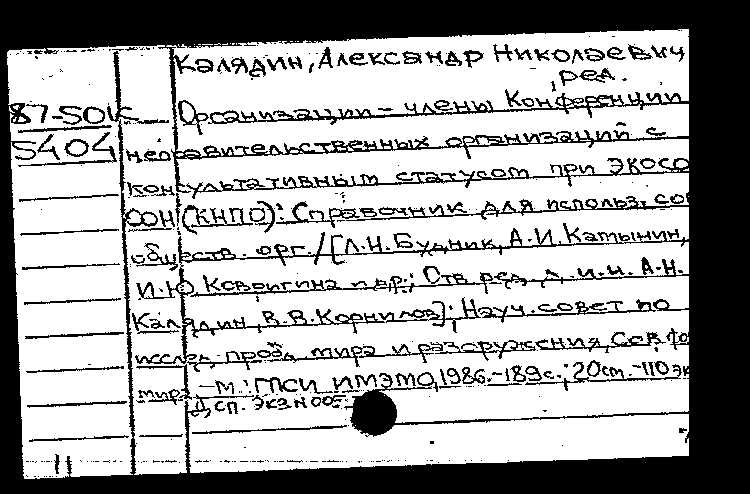 Калядин, Александр Николаевич,
ред.
87-50К Организации – члены Конференции
5404 неправительственных организаций с
консультативным статусом при ЭКОСО
ООН (КНПО): Справочник для использ. сов
обществ. орг. / [Л.Н. Будник, А.И. Катынин,
И.Ю. Ковригина и др.; Отв. ред. д.и.н. А.Н.
Калядин, В.В. Корнилов]; Науч. совет по
исслед. пробл. мира и разоружения, Сов. фо
мира. – М.: ГПСИ ИМЭМО, 1986. – 189 с.; 20 см. – 110 эк
Д/сп. Экз N 005
11